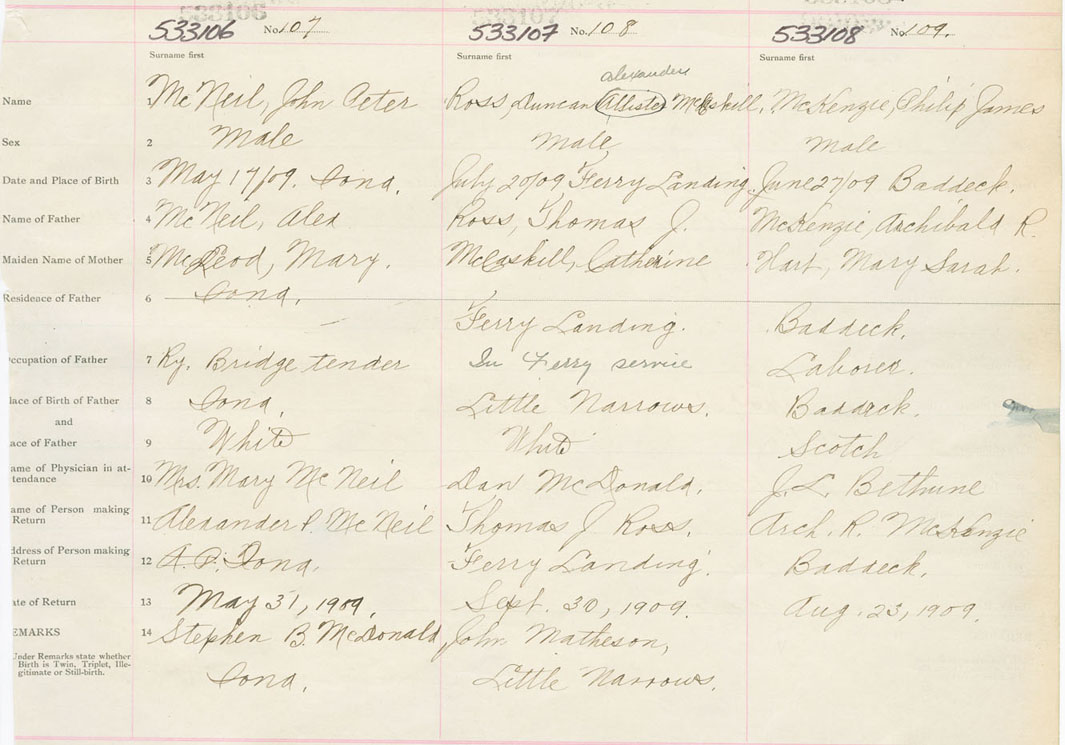 533106 No. 107 533107 No. 108 533108 No. 109.
Surname first Surname first Surname first
Alexander
Name 1 McNeil, John Peter Ross, Duncan Allister McAskill. McKenzie, Philip James
Sex 2 Male Male Male
Date and Place of Birth 3 May 17/09. Iona. July 20/09 Ferry Landing. June 27/09 Baddeck.
Name of Father 4 McNeil, Alex Ross, Thomas J. McKenzie, Archibald R.
Maiden Name of Mother 5 McLeod, Mary. McCaskill, Catherine Hart, Mary Sarah.
Residence of Father 6 Iona.
Ferry Landing. Baddeck.
ccupation of Father 7 Ry. Bridge tender In Ferry service Laborer.
lace of Birth of Father 8 Iona. Little Narrows. Baddeck.
and
ace of Father 9 White White Scotch
ame of Physician in at-
tendance 10 Mrs. Mary McNeil Dan McDonald. J. L. Bethune
ame of Person making
Return 11 Alexander P. McNeil Thomas J. Ross. Arch. R. McKenzie
ddress of Person making
Return 12 A. P. Iona. Ferry Landing. Baddeck.
ate of Return 13 May 31, 1909. Sept. 30, 1909. Aug. 23, 1909.
EMARKS 14 Stephen B. McDonald, John Matheson,
Under Remarks state whether
Birth is Twin, Triplet, Ille-
gitimate or Still-birth.
Iona. Little Narrows.